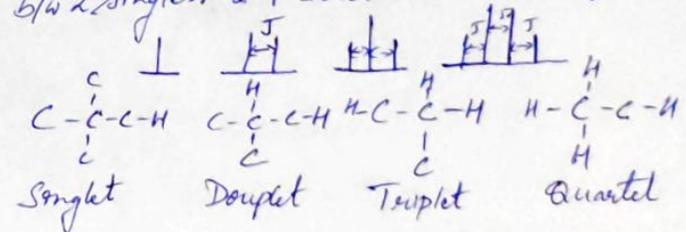 b/w 2 singlet & 1
J J J J
C C-C-C-H C
H C-C-C-H C
H H-C-C-H C
H H-C-C-H H
Songlet Douplet Triplet Quartet